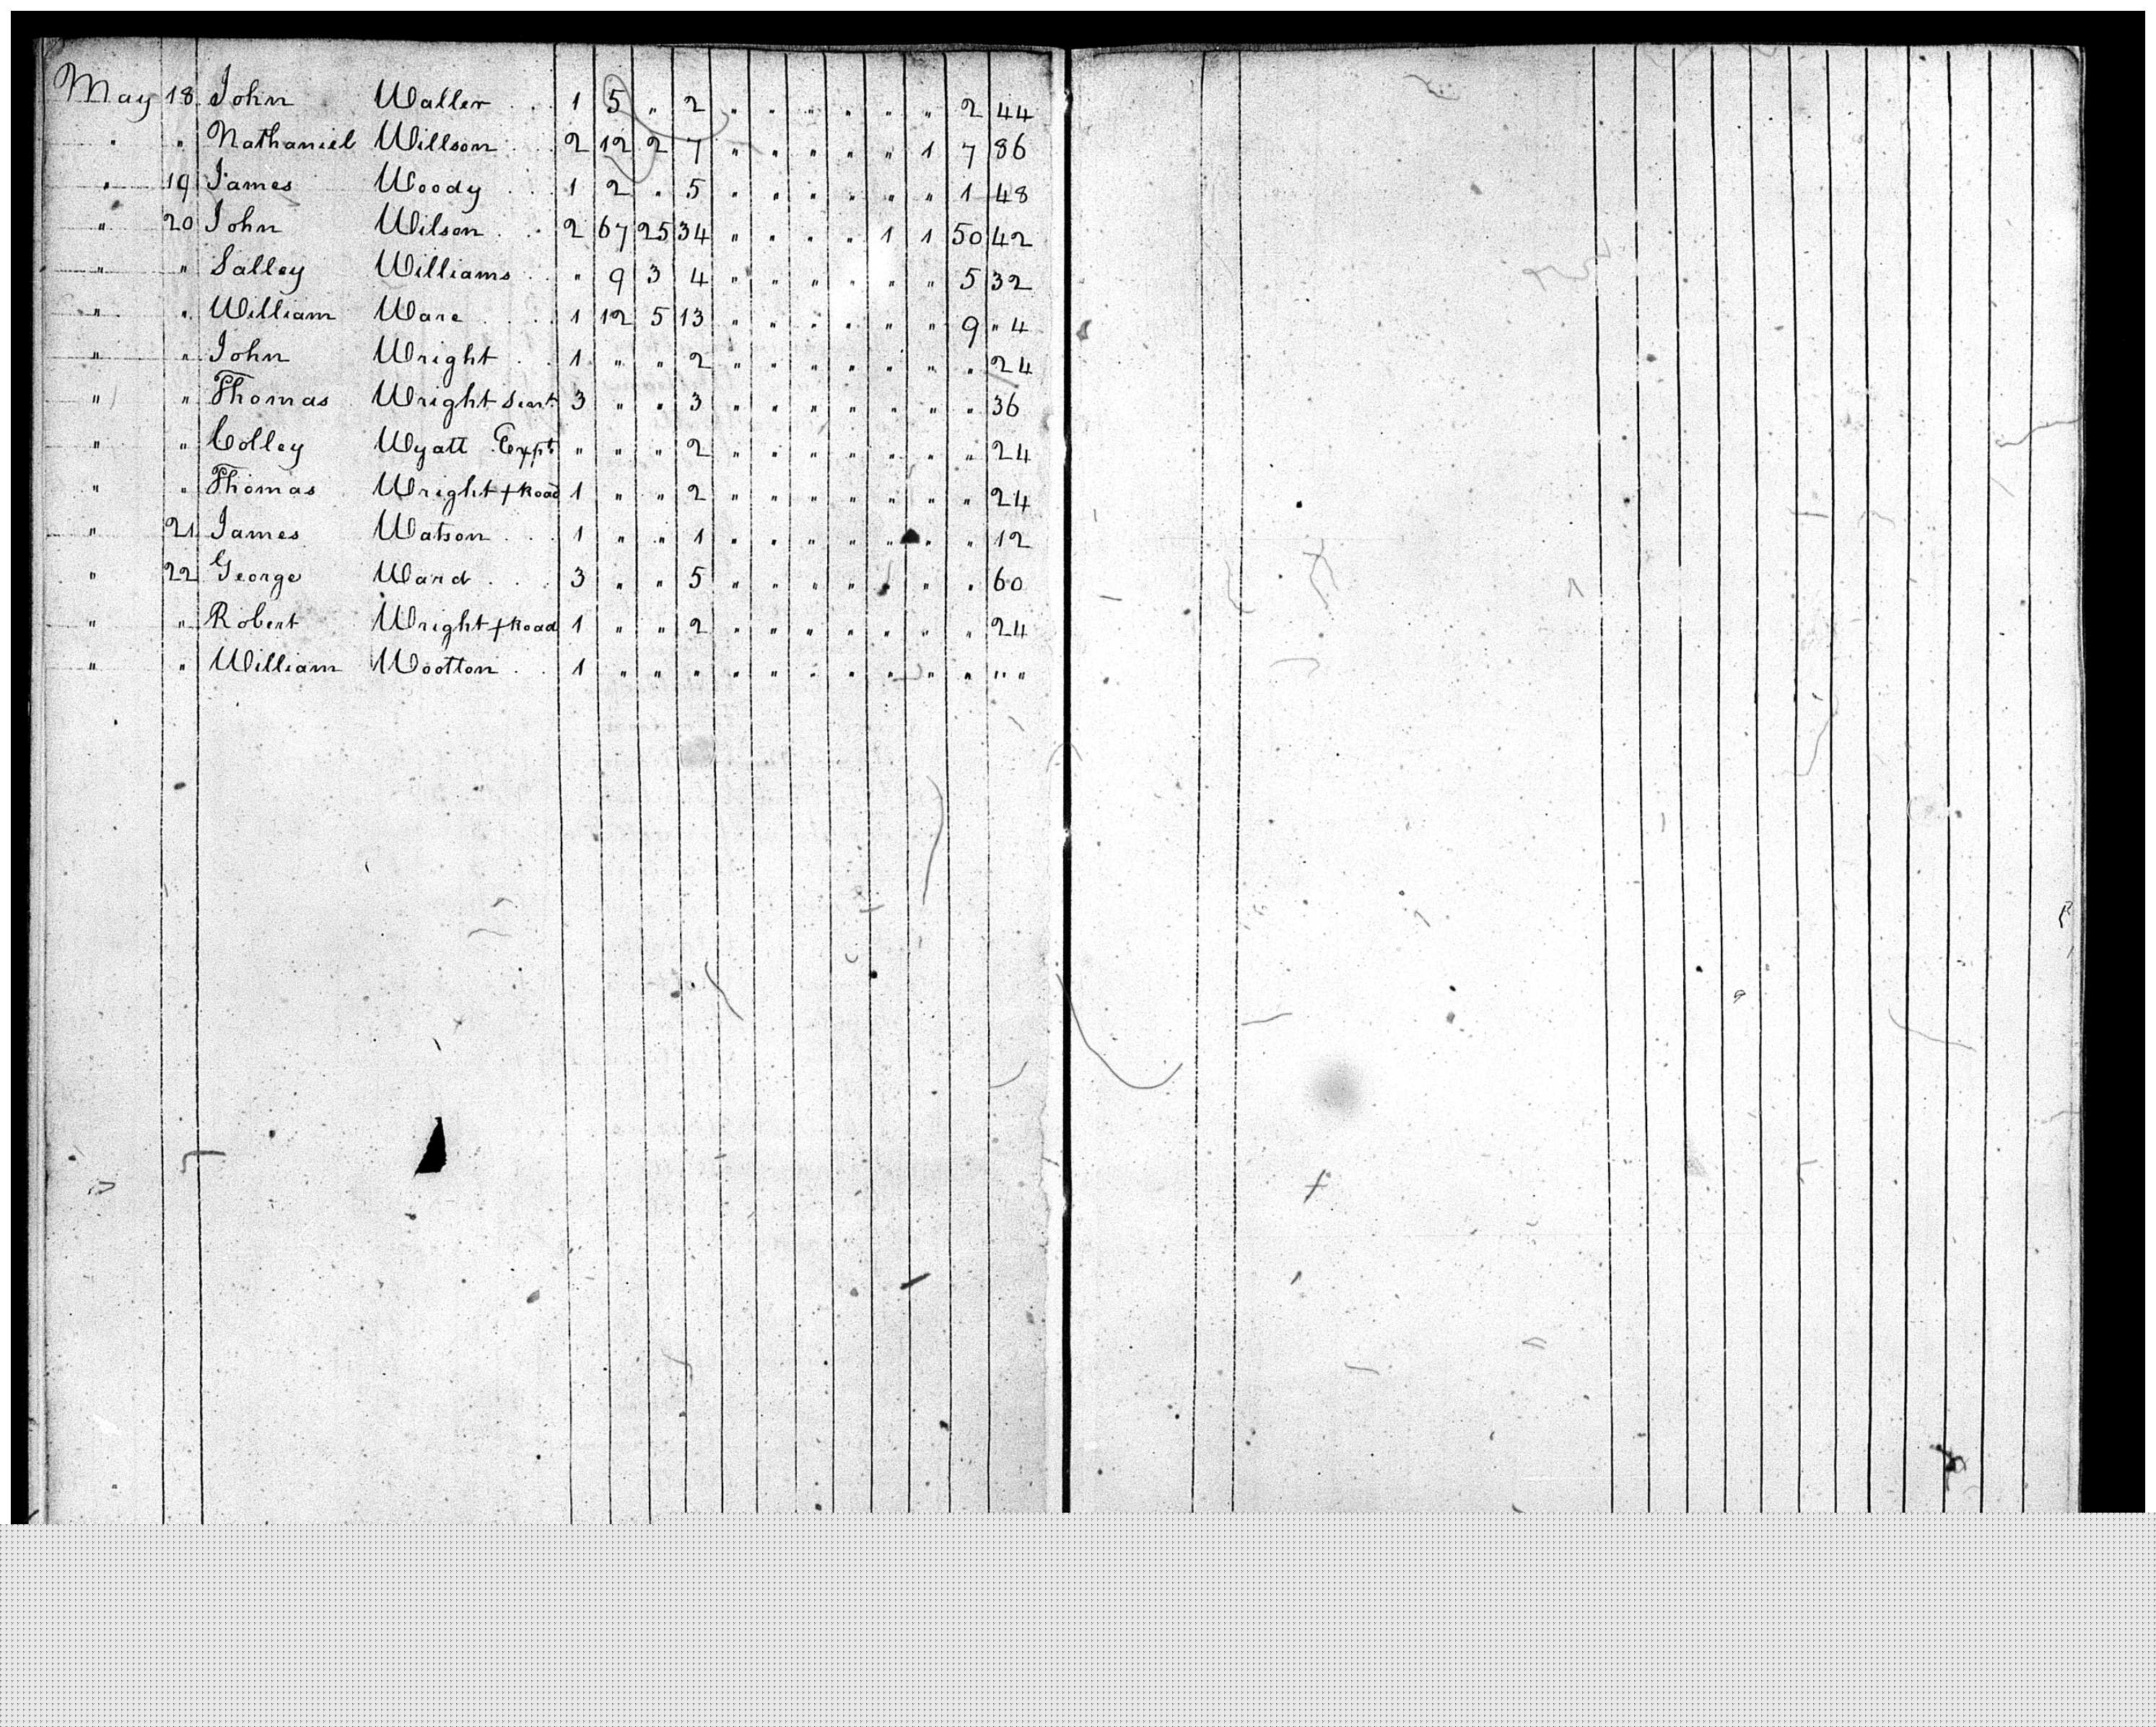 May 18 John Waller . . 1 5 " 2 " " " " " " 2 44
" " Nathaniel Willson . . 2 12 2 7 " " " " " 1 7 86
" 19 James Woody . . 1 2 " 5 " " " " " " 1 48
" 20 John Wilson . . 2 67 25 34 " " " " 1 1 50 42
" " Salley Williams . . " 9 3 4 " " " " " " 5 32
" " William Ware . . 1 12 5 13 " " " " " " 9 " 4
" " John Wright . . 1 " " 2 " " " " " " " 24
" " Thomas Wright 3 " " 3 " " " " " " " 36
" " Colley Wyatt Expt " " " 2 " " " " " " " 24
" " Thomas Wright + Road 1 " " 2 " " " " " " " 24
" 21 James Watson . . . 1 " " 1 " " " " " " " 12
" 22 George Ward . . . 3 " " 5 " " " " " " " 60
" " Robert Wright + Road 1 " " 2 " " " " " " " 24
" " William Wootton . . 1 " " " " " " " " " " " "